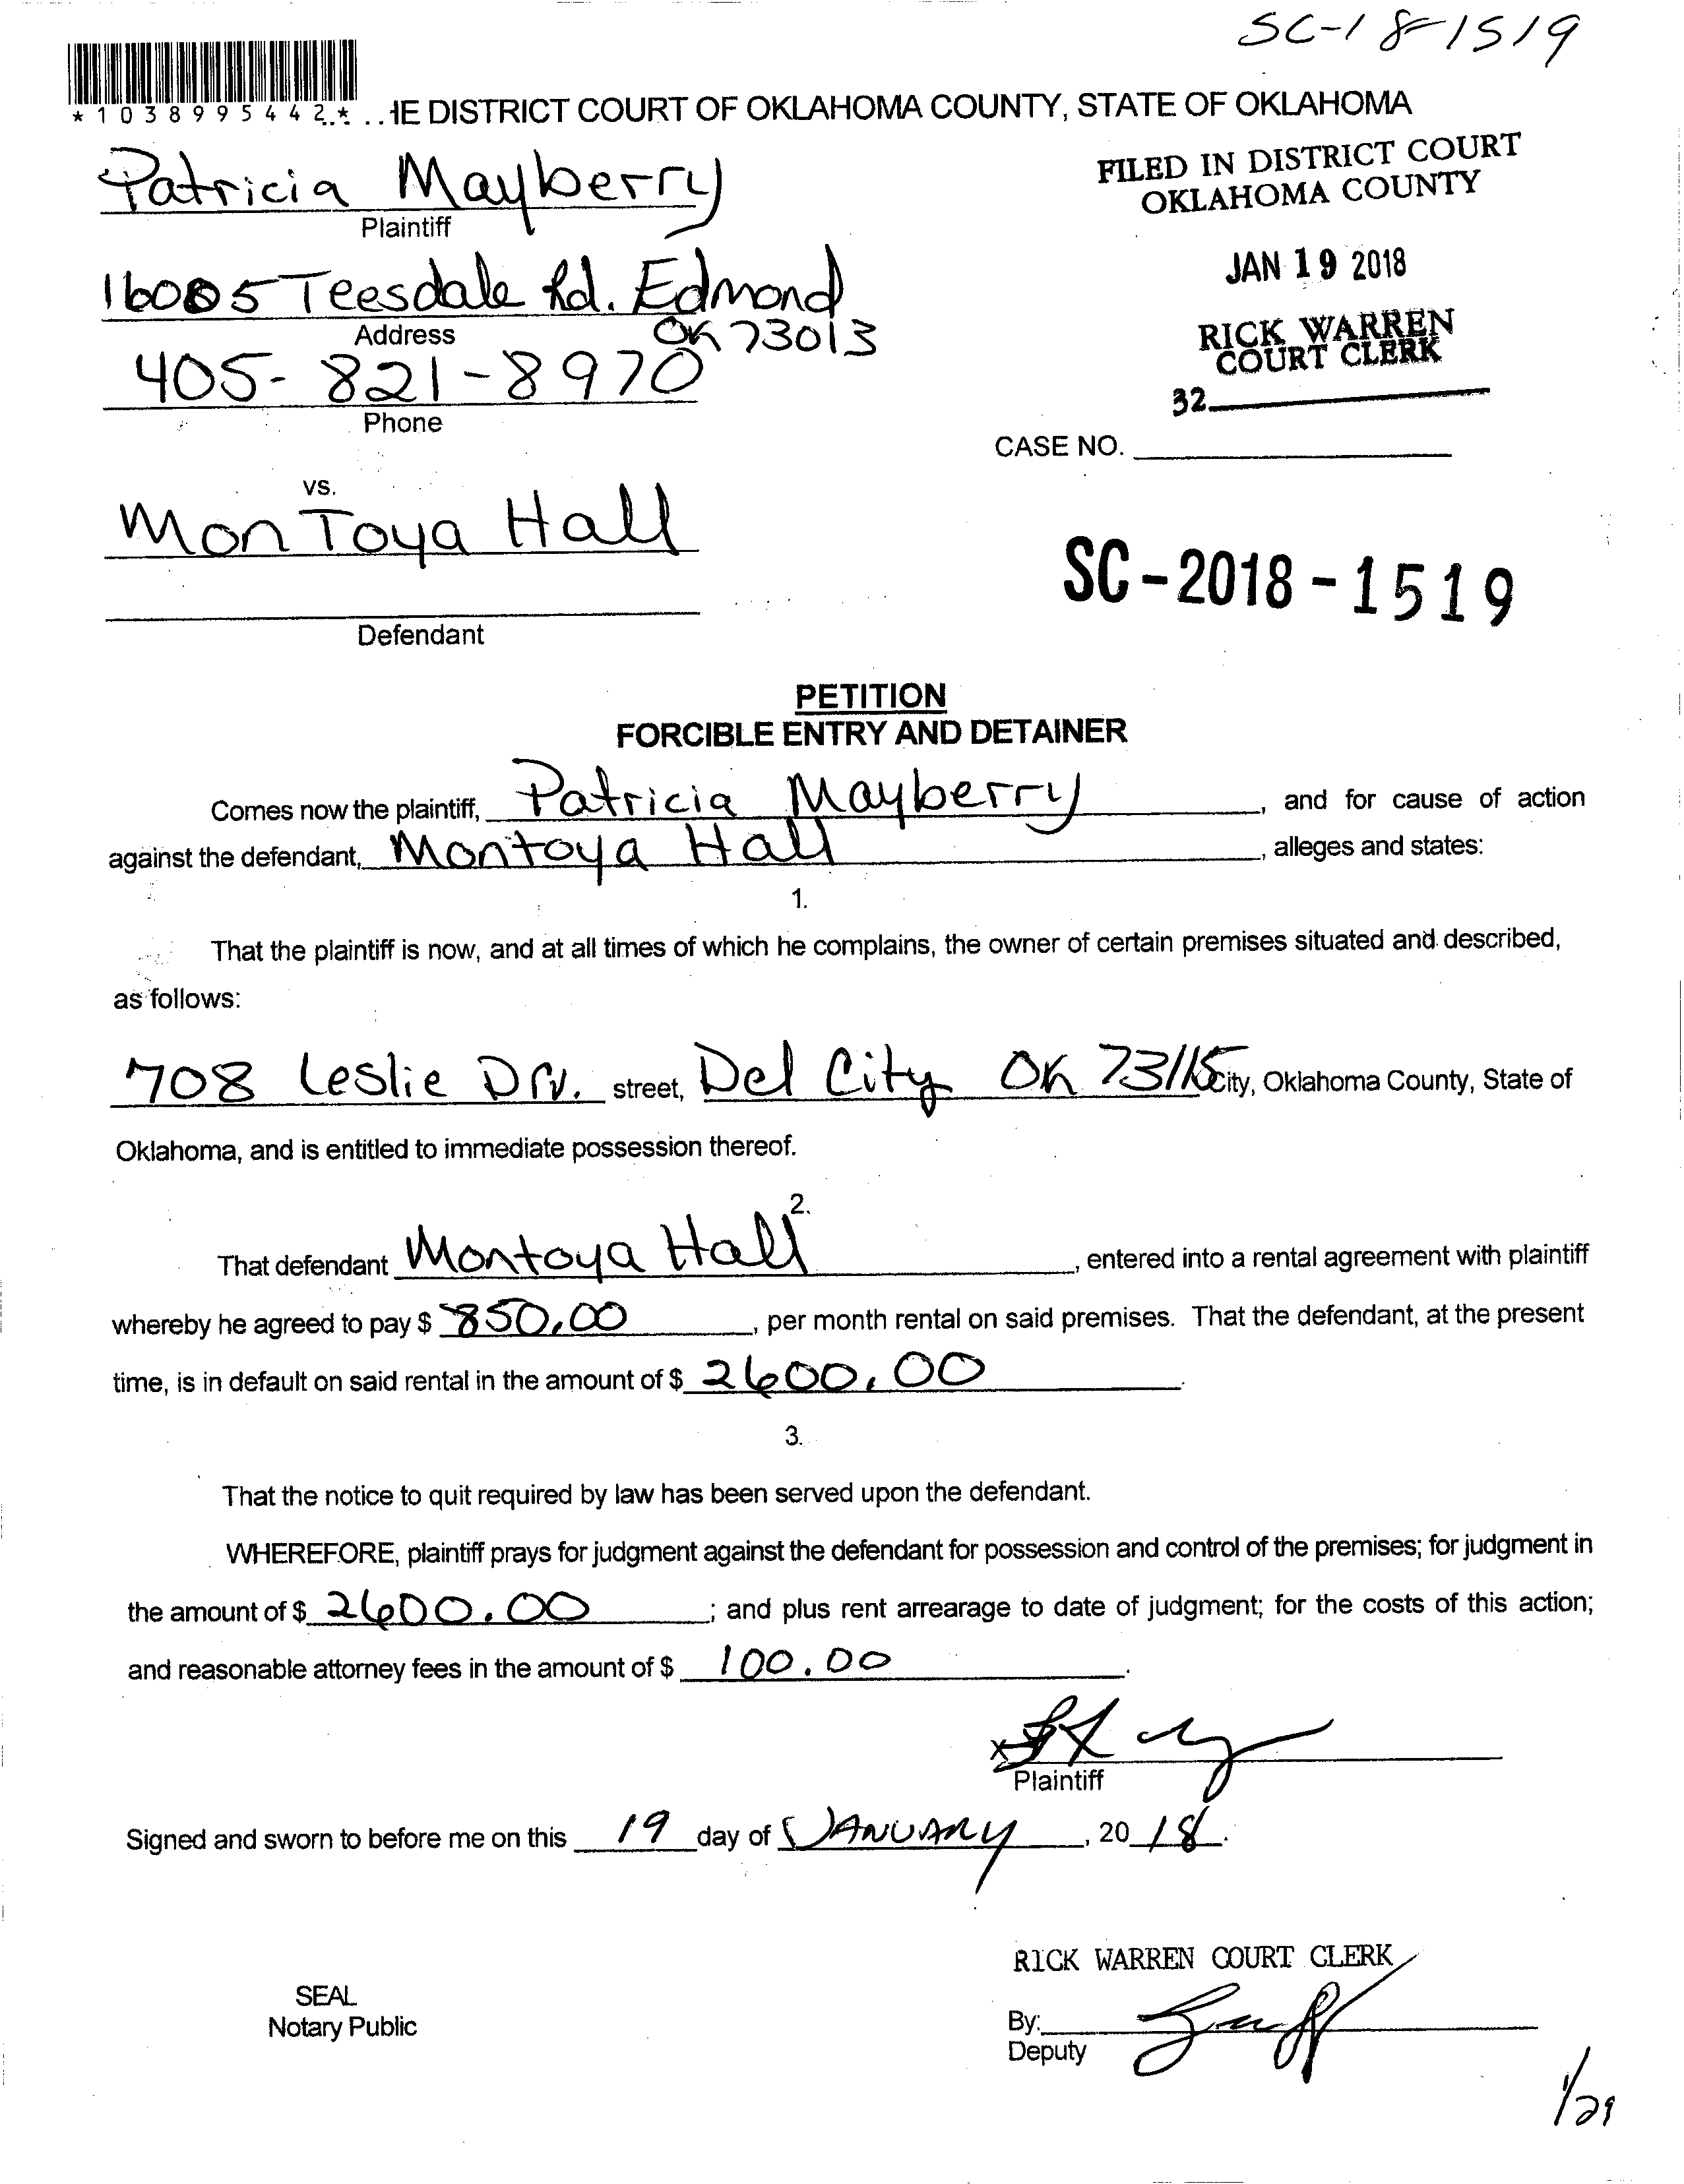 SC-18-1519
*1038995442* ..HE DISTRICT COURT OF OKLAHOMA COUNTY, STATE OF OKLAHOMA
Patricia Mayberry
Plaintiff
FILED IN DISTRICT COURT
OKLAHOMA COUNTY
JAN 19 2018
RICK WARREN
COURT CLERK
32
Teesdale Rd. Edmond
Address
OK 73013
405-821-8970
Phone
CASE NO.
vs.
MonToya Hall
Defendant
SC-2018-1519
PETITION
FORCIBLE ENTRY AND DETAINER
Comes now the plaintiff, Patricia Mayberry, and for cause of action
against the defendant, Montoya Hall, alleges and states:
1.
That the plaintiff is now, and at all times of which he complains, the owner of certain premises situated and described,
as follows:
708 Leslie Drv. street, Del City OK 73115 City, Oklahoma County, State of
Oklahoma, and is entitled to immediate possession thereof.
2.
That defendant Montoya Hall, entered into a rental agreement with plaintiff
whereby he agreed to pay $ 850.00, per month rental on said premises. That the defendant, at the present
time, is in default on said rental in the amount of $ 2600.00.
3.
That the notice to quit required by law has been served upon the defendant.
WHEREFORE, plaintiff prays for judgment against the defendant for possession and control of the premises; for judgment in
the amount of $ 2600.00; and plus rent arrearage to date of judgment; for the costs of this action;
and reasonable attorney fees in the amount of $ 100.00.
X
Plaintiff
Signed and sworn to before me on this 19 day of JANUARY, 2018.
RICK WARREN COURT CLERK
SEAL
Notary Public
By:
Deputy
1/29